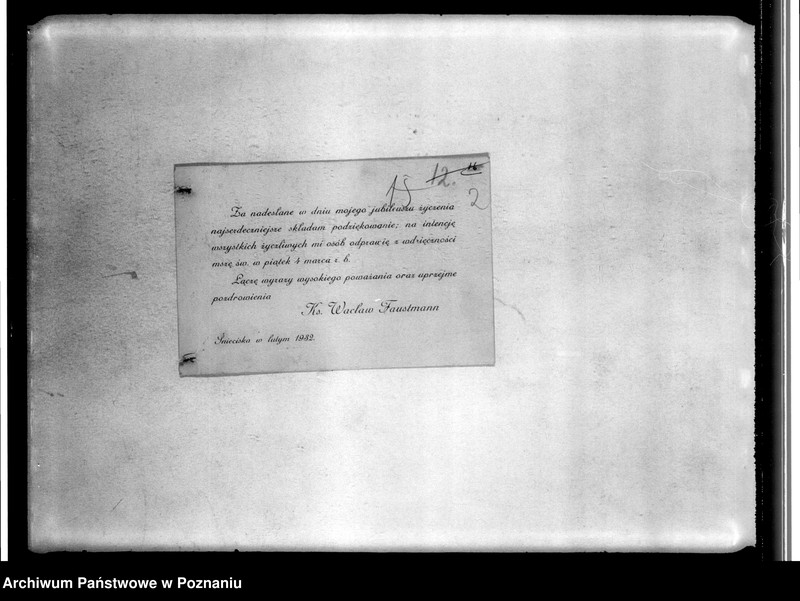 16
12.
15
2
Za nadesłane w dniu mojego jubileuszu życzenia
najserdeczniejsze składam podziękowanie; na intencję
wszystkich życzliwych mi osób odprawię z wdzięczności
mszę św. w piątek 4 marca r. b.
Łączę wyrazy wysokiego poważania oraz uprzejme
pozdrowienia
Ks. Wacław Faustmann
Śnieciska w lutym 1932.
Archiwum Państwowe w Poznaniu